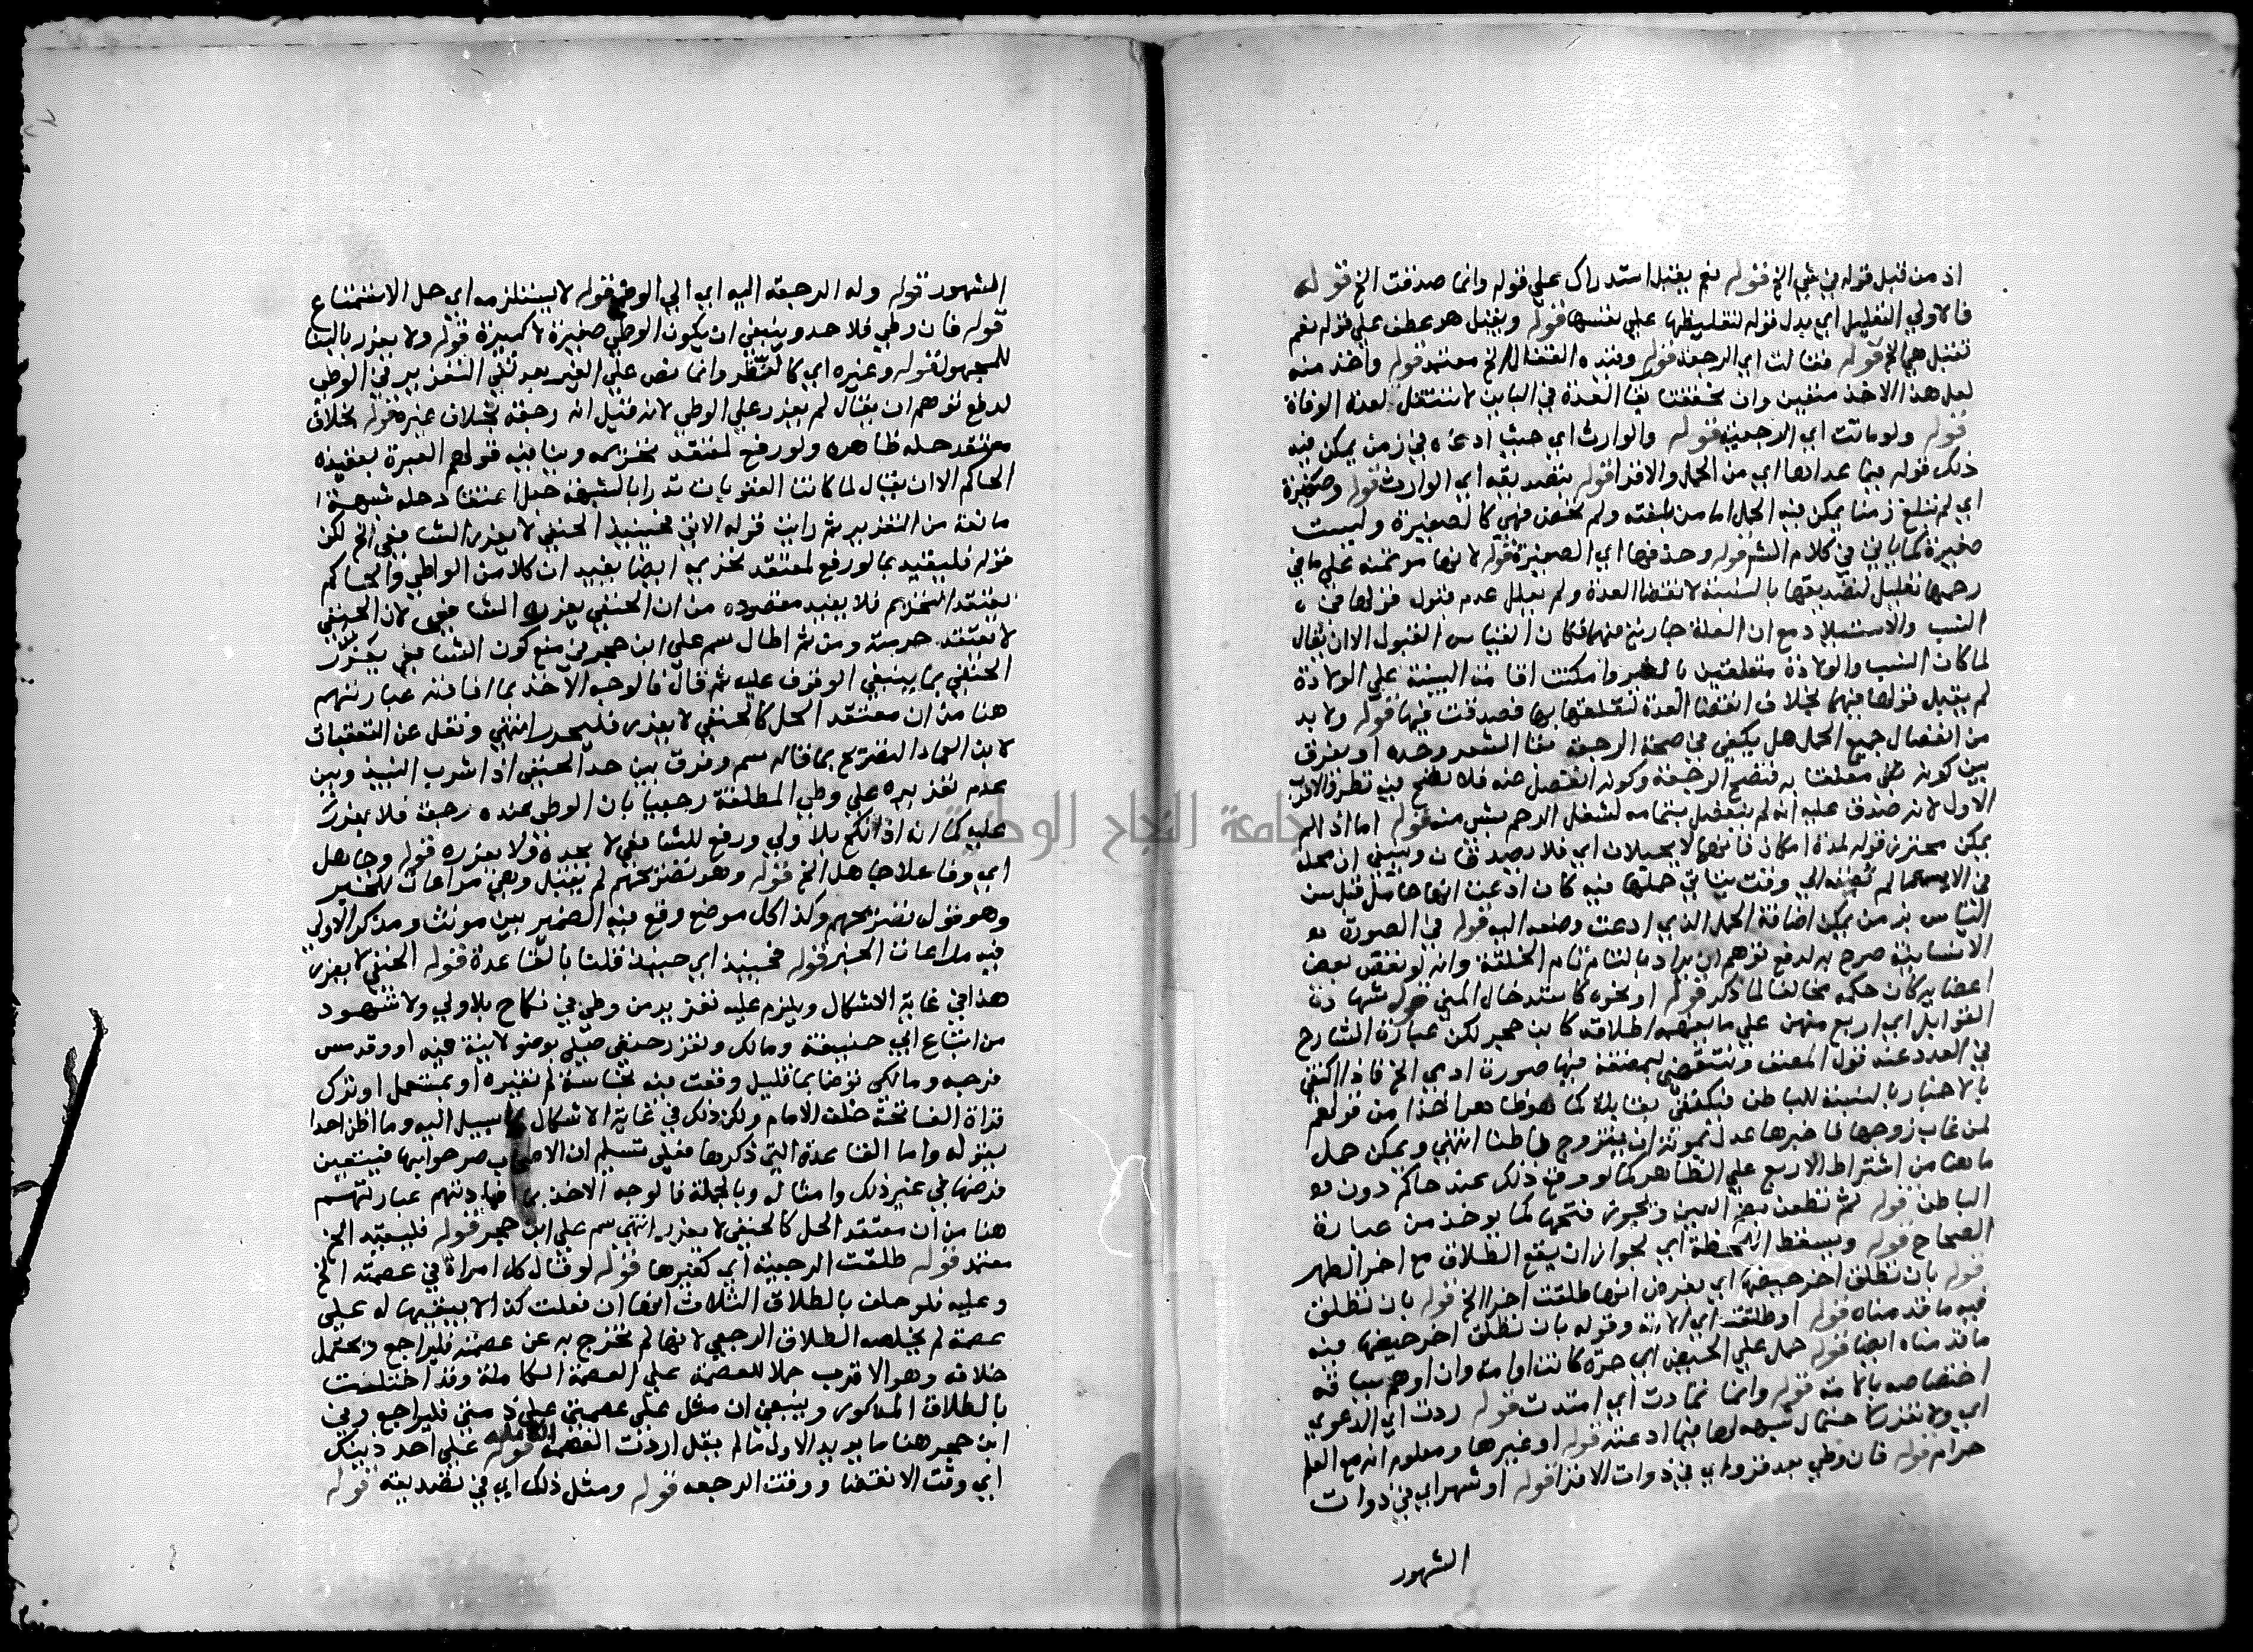 اذ من قبل قوله في شي الخ قوله نعم يقبل استدراك علي قوله وانما صدقت الخ قوله
فالاولي التعليل اي بدل قوله لتغليظها علي نفسها قوله ويقبل هو عطف علي قوله نعم
تقبل هي الخ قوله فقالت اي الرجعة قوله وقيده القفال الخ معتمد قوله واخذ منه
لعل هذا الاخذ متعين وان تحققت بقا العدة في الباين لا تنتقل لعدة الوفاة
قوله ولو ماتت اي الرجعية قوله والوارث اي حيث ادعاه في زمن يمكن فيه
ذلك قوله فيما عداها اي من الحمل والاقرا قوله بتصديقه اي الوارث قوله وصغيرة
اي لم تبلغ زمنا يمكن فيه الحمل اما من بلغته ولم تحض فهي كالصغيرة وليست
صغيرة كما ياتي في كلام الشم قوله وحذفها اي الصغيرة قوله لانها موتمنة علي ما في
رحمها تعليل لتصديقها بالنسبة لانقضا العدة ولم يعلل عدم قبول قولها في
النسب والاستيلاد مع ان العلة جارية فيهما فكان القياس القبول الا ان يقال
لما كان النسب والولادة متعلقين بالغير وامكنت اقامة البينة علي الولادة
لم يقبل قولها فيهما بخلاف انقضا العدة لتعلقها بها فصدقت فيها قوله ولا بد
من انفصال جميع الحمل هل يكفي في صحة الرجعة بقا الشعر وحده او يفرق
بين كونه متعلقا به فتصح الرجعة وكونه انفصل عنه فلا تصح فيه نظر والاقرب
الاول لانه صدق عليه انه لم ينفصل بتمامه لشغل الرحم بشي منه قوله اما اذا لم
يمكن محترز قوله لمدة امكان فانها لا يحيلان اي فلا رصد فان وينبغي ان محله
في الايسة ما لم تضفه الي وقت يتاتي حملها فيه كان ادعت انها حامل قبل سن
الياس بزمن يمكن اضافة الحمل الذي ادعت وضعه اليه قوله في الصورة
الانسانية صرح به لدفع توهم ان يراد بالتام تام الخلقة وانه لو نقص بعض
اعضايه كان حكمه مخالفا لما ذكر قوله او نحوه كاستدخال المني قوله شهادة
القوابل اي اربع منهن علي ما يفهمه اطلاقه كابن حجر لكن عبارة الشارح
في العدد عند قول المصنف وتنقضي بمضغة فيها صورة ادمي الخ فاذا اكتفي
بالاخبار بالنسبة للباطن فيكتفي بقابلة كما هو ظاهر اخذا من قولهم
لمن غاب زوجها فاخبرها عدل بموته ان يتزوج باطنا انتهي ويمكن حمل
ما هنا من اشتراط الاربع علي الظاهر كما لو وقع ذلك عند حاكم دون
الباطن قوله ثم تطعن بضم العين ويجوز فتحها كما يوخذ من عبارة
الصحاح قوله ويسقط اللحظة اي لجواز ان يقع الطلاق مع اخر الطهر
قوله بان تطلق اخر حيضها اي بفرض انها طلقت اخر الخ قوله بان تطلق
فيه ما قدمناه قوله او طلقت اي الامة وقوله بان تطلق اخر حيضها فيه
ما قدمناه ايضا قوله حمل علي الحيض اي حرة كانت او امة وان اوهم سياقه
اختصاصه بالامة قوله وانما تمادت اي امتدت قوله ردت اي الدعوي
اي ولا تعزر لاحتمال شبهه لها فيما ادعته قوله او غيرها ومعلوم انه مع العلم
حرام قوله فان وطي بعد قرو اي في ذوات الاقرا قوله او شهر اي في ذوات
الشهور
الشهور قوله وله الرجعة اليه اي الي الوضع قوله لا يستلزمه اي حل الاستمتاع
قوله فان وطي فلا حد وينبغي ان يكون الوطي صغيرة لا كبيرة قوله ولا يعزر بالبنا
للمجهول قوله وغيره اي كالنظر وانما نص علي الغير بعد نفي التعزير في الوطي
لدفع توهم ان يقال لم يعزر علي الوطي لانه قيل انه رجعة بخلاف غيره قوله بخلاف
معتقد حله ظاهره ولو رفع لمعتقد تحريمه وينافيه قولهم العبرة بعقيدة
الحاكم الا ان يقال لما كانت العقوبات تدرا بالشبهة جعل اعتقاد حله شبهة
مانعة من التعزير ثم رايت قوله الاتي فحينيذ الحنفي لا يعزر الشافعي الخ لكن
قوله فليقيد بما لو رفع لمعتقد تحريمه ايضا يفيد ان كلا من الواطي والحاكم
يعتقد التحريم فلا يفيد مقصوده من ان الحنفي يعزره الشافعي لان الحنفي
لا يعتقد حرمته ومن ثم اطال سم علي ابن حجر في منع كون الشافعي يعزر
الحنفي بما ينبغي الوقوف عليه ثم قال فالوجه الاخذ بما افادته عبارتهم
هنا من ان معتقد الحل كالحنفي لا يعزر فليحرر انتهي ونقل عن التعقبات
لابن العماد التصريح بما قاله سم وفرق بين حد الحنفي اذا شرب النبيذ وبين
عدم تعزيره علي وطي المطلقة رجعيا بان الوطي عنده رجعة فلا يعزر
عليه كما انه اذا نكح بلا ولي ورفع للشافعي لا يحده ولا يعزره قوله وجاهل
اي وفاعلا جاهل الخ قوله وهو تضررهم لم يقبل وهي مراعات للخبر
وهو قول تضررهم وكذا كل موضع وقع فيه الضمير بين مونث ومذكر الاولي
فيه مراعات الخبر قوله فحينيذ اي حينيذ قلنا بالقاعدة قوله الحنفي لا يعزر
هذا في غاية الاشكال ويلزم عليه تعزير من وطي في نكاح بلا ولي ولا شهود
من اتباع ابي حنيفة ومالك وتعزر حنفي صلي بوضو لا نية فيه او وقد مس
فرجه ومالكي توضا بما قليل وقعت فيه نجاسة لم تغيره او بمستعمل او ترك
قراة الفاتحة خلف الامام ولكن ذلك في غاية الاشكال لا سبيل اليه وما اظن احدا
يقوله واما القاعدة التي ذكرها فعلي تسليم ان الاصحاب صرحوا بها فيتعين
فرضها في غير ذلك وامثاله وبالجملة فالوجه الاخذ بما افادتهم عبارتهم
هنا من ان معتقد الحل كالحنفي لا يعزر انتهي سم علي ابن حجر قوله فليقيد الخ
معتمد قوله طلقت الرجعية اي كغيرها قوله لو قال كل امراة في عصمته الخ
وعليه فلو حلف بالطلاق الثلاث ايضا ان فعلت كذا لا يبقيها له علي
عصمة لم يخلصه الطلاق الرجعي لانها لم تخرج به عن عصمته فليراجع ويحتمل
خلافه وهو الاقرب حملا للعصمة علي العصمة الكاملة وقد اختلفت
بالطلاق المذكور وينبغي ان مثل علي عصمتي علي ذمتي فليراجع وفي
ابن حجر هنا ما يويد الاول ما لم يقل اردت العصمة الكاملة قوله علي احد ذينك
اي وقت الانقضا ووقت الرجعه قوله ومثل ذلك اي في تصديقه قوله
جامعة النجاح الوطنية